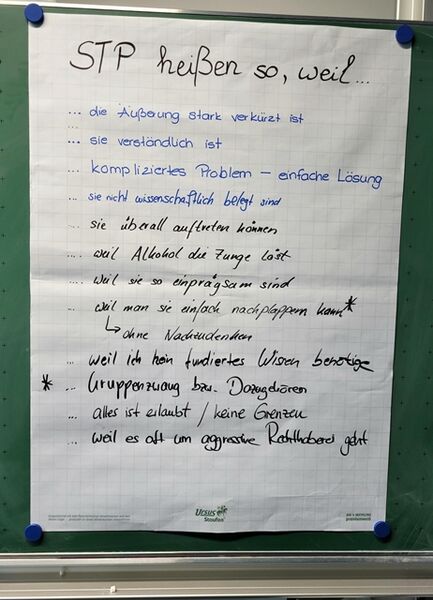 STP heißen so, weil...
... die Äußerung stark verkürzt ist
... sie verständlich ist
... kompliziertes Problem – einfache Lösung
... sie nicht wissenschaftlich belegt sind
... sie überall auftreten können
... weil Alkohol die Zunge löst
... weil sie so einprägsam sind
... weil man sie einfach nachplappern kann*
↳ ohne Nachzudenken
... weil ich kein fundiertes Wissen benötige
* ... Gruppenzwang bzw. Dazugehören
... alles ist erlaubt / keine Grenzen
... weil es oft um aggressive Rechthaberei geht
Ursus
Staufen